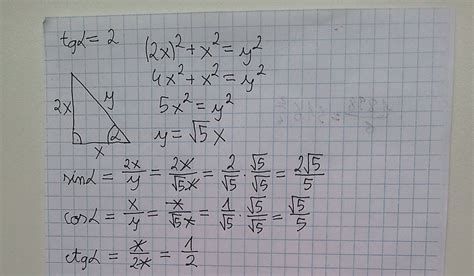 tgα = 2
(2x)² + x² = y²
4x² + x² = y²
5x² = y²
y = √5 x
2x y
α
x
sinα = 2x/y = 2x/√5x = 2/√5 · √5/√5 = 2√5/5
cosα = x/y = x/√5x = 1/√5 · √5/√5 = √5/5
ctgα = x/2x = 1/2